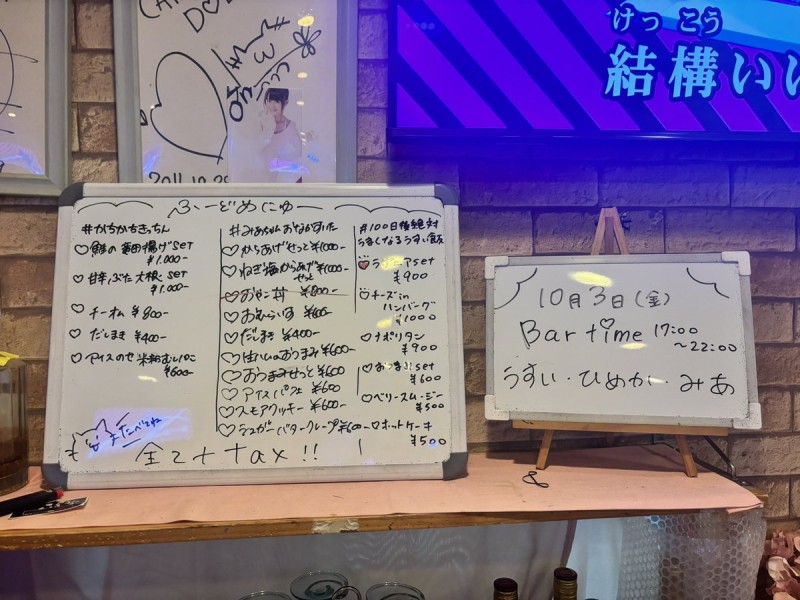 2011.10.29
けっこう
結構いい
ふーどめにゅー
#かちかちきっちん
♡鮭の竜田揚げset
¥1.000-
♡甘辛ぶた大根set
¥1.000-
♡チーオム ¥800-
♡だしまき ¥400-
♡アイスのせ米粉むしぱんこ
¥600-
またたべてね
#みあちゃんおなかすいた
♡からあげせっと¥1000-
♡ねぎ塩からあげ¥1000-
せっと
♡おやこ丼 ¥800-
♡おむらいす ¥600-
♡だしまき ¥400-
♡生ハムのおつまみ¥600-
♡おつまみせっと¥600
♡アイスパフェ ¥600
♡スモアクッキー ¥600-
♡シュガーバタークレープ¥600-
#100日後絶対
うまくなるうすい飯
¥900
♡チーズin
ハンバーグ
¥1000
♡ナポリタン
¥900
♡おつまみset
¥600
♡ベリースムージー
¥500
♡ホットケーキ
¥500
全て+tax!!
10月3日(金)
Bar time 17:00
~22:00
うすい・ひめか・みあ